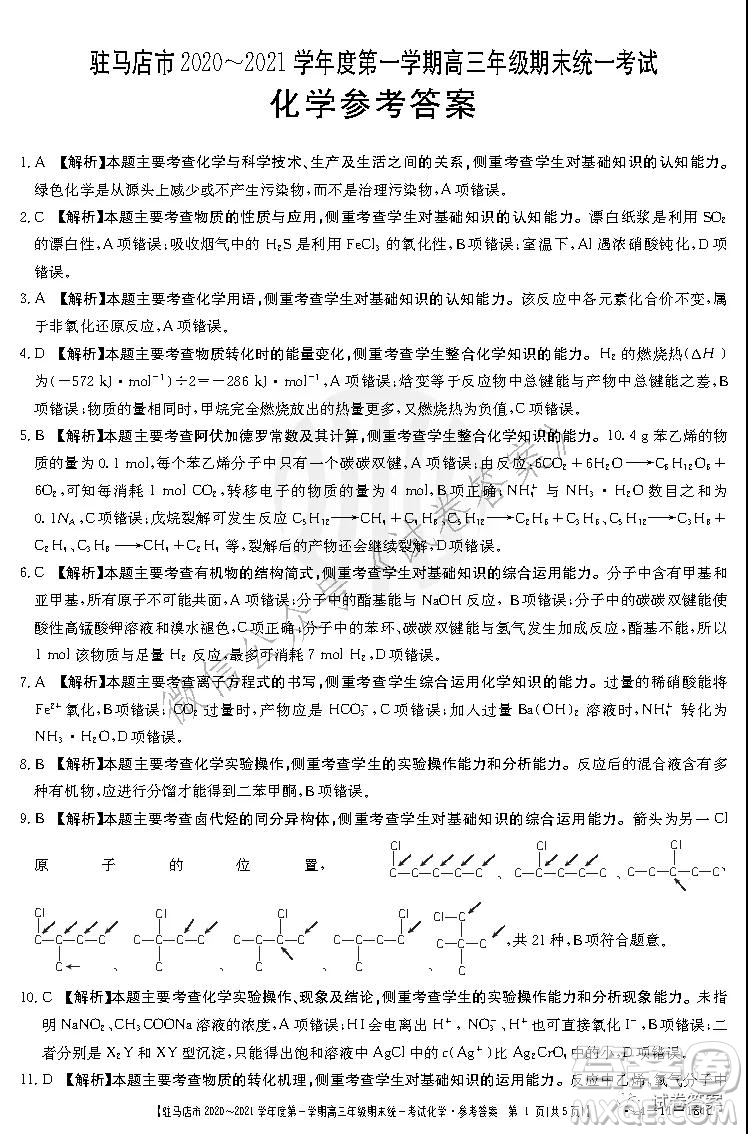 驻马店市 2020~2021 学年度第一学期高三年级期末统一考试
化学参考答案
1. A 【解析】本题主要考查化学与科学技术、生产及生活之间的关系,侧重考查学生对基础知识的认知能力。
绿色化学是从源头上减少或不产生污染物,而不是治理污染物,A项错误。
2. C 【解析】本题主要考查物质的性质与应用,侧重考查学生对基础知识的认知能力。漂白纸浆是利用 SO₂
的漂白性,A 项错误;吸收烟气中的 H₂S 是利用 FeCl₃ 的氧化性,B项错误;室温下,Al 遇浓硝酸钝化,D 项
错误。
3. A 【解析】本题主要考查化学用语,侧重考查学生对基础知识的认知能力。该反应中各元素化合价不变,属
于非氧化还原反应,A项错误。
4. D 【解析】本题主要考查物质转化时的能量变化,侧重考查学生整合化学知识的能力。H₂ 的燃烧热(ΔH)
为(−572 kJ·mol⁻¹)÷2=−286 kJ·mol⁻¹,A项错误;焓变等于反应物中总键能与产物中总键能之差,B
项错误;物质的量相同时,甲烷完全燃烧放出的热量更多,又燃烧热为负值,C 项错误。
5. B 【解析】本题主要考查阿伏加德罗常数及其计算,侧重考查学生整合化学知识的能力。10.4 g 苯乙烯的物
质的量为 0.1 mol,每个苯乙烯分子中只有一个碳碳双键,A 项错误;由反应,6CO₂+6H₂O⟶C₆H₁₂O₆+
6O₂,可知每消耗 1 mol CO₂,转移电子的物质的量为 4 mol,B 项正确;NH₄⁺ 与 NH₃·H₂O 数目之和为
0.1Nₐ,C项错误;戊烷裂解可发生反应 C₅H₁₂⟶CH₄+C₄H₈、C₅H₁₂⟶C₂H₆+C₃H₆、C₅H₁₂⟶C₃H₈+
C₂H₄、C₅H₁₂⟶CH₄+C₄H₈ 等,裂解后的产物还会继续裂解,D项错误。
6. C 【解析】本题主要考查有机物的结构简式,侧重考查学生对基础知识的综合运用能力。分子中含有甲基和
亚甲基,所有原子不可能共面,A 项错误;分子中的酯基能与 NaOH 反应,B项错误;分子中的碳碳双键能使
酸性高锰酸钾溶液和溴水褪色,C 项正确;分子中的苯环、碳碳双键能与氢气发生加成反应,酯基不能,所以
1 mol 该物质与足量 H₂ 反应,最多可消耗 7 mol H₂,D项错误。
7. A 【解析】本题主要考查离子方程式的书写,侧重考查学生综合运用化学知识的能力。过量的稀硝酸能将
Fe²⁺氧化,B项错误;CO₂ 过量时,产物应是 HCO₃⁻,C项错误;加入过量 Ba(OH)₂ 溶液时,NH₄⁺ 转化为
NH₃·H₂O,D项错误。
8. B 【解析】本题主要考查化学实验操作,侧重考查学生的实验操作能力和分析能力。反应后的混合液含有多
种有机物,应进行分馏才能得到二苯甲酮,B项错误。
9. B 【解析】本题主要考查卤代烃的同分异构体,侧重考查学生对基础知识的综合运用能力。箭头为另一个Cl
原子的位置,
,共 21 种,B项符合题意。
10. C 【解析】本题主要考查化学实验操作、现象及结论,侧重考查学生的实验操作能力和分析实验能力。未指
明 NaNO₂、CH₃COONa 溶液的浓度,A项错误;HI会电离出 H⁺,NO₃⁻、H⁺ 也可直接氧化 I⁻,B项错误;二
者分别是 X₂Y 和 XY 型沉淀,只能得出饱和溶液中 AgCl 中的 c(Ag⁺)比 Ag₂CrO₄ 中的小,D项错误。
11. D 【解析】本题主要考查物质的转化机理,侧重考查学生对基础知识的综合运用能力。反应中乙烯、氧气中
【驻马店市 2020~2021 学年度第一学期高三年级期末统一考试化学·参考答案 第 1 页(共5页)】
微信公众号《试卷答案》
试卷答案